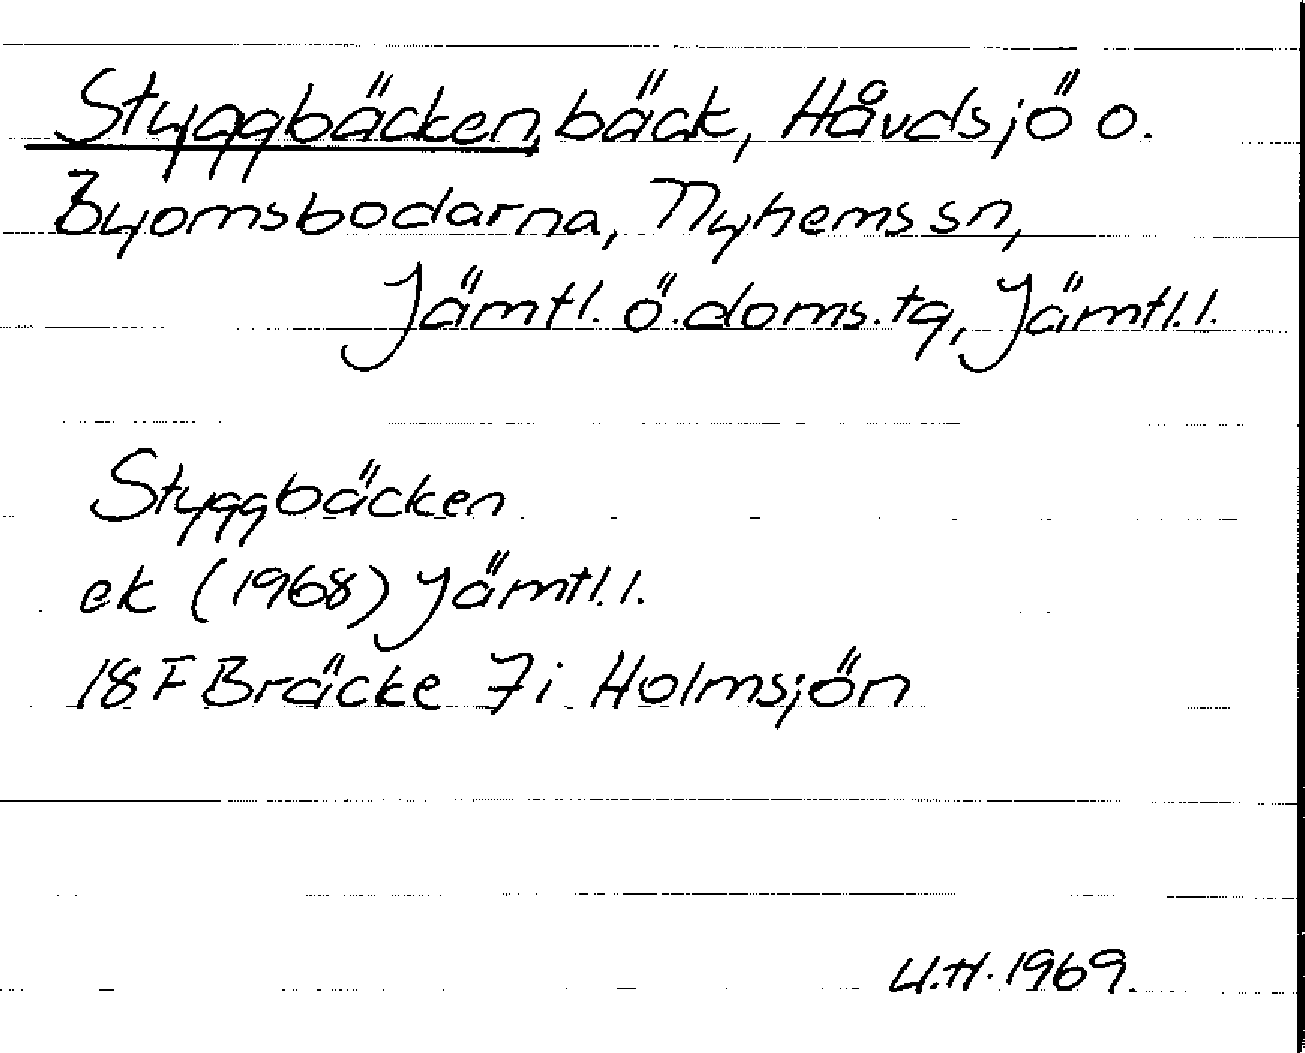 Styggbäcken, bäck, Håvdsjö o.
Byomsbodarna, Nyhems sn,
Jämtl. ö. doms. tg, Jämtl. l.
Styggbäcken
ek (1968) Jämtl. l.
18 F Bräcke 7i Holmsjön
U.H. 1969.